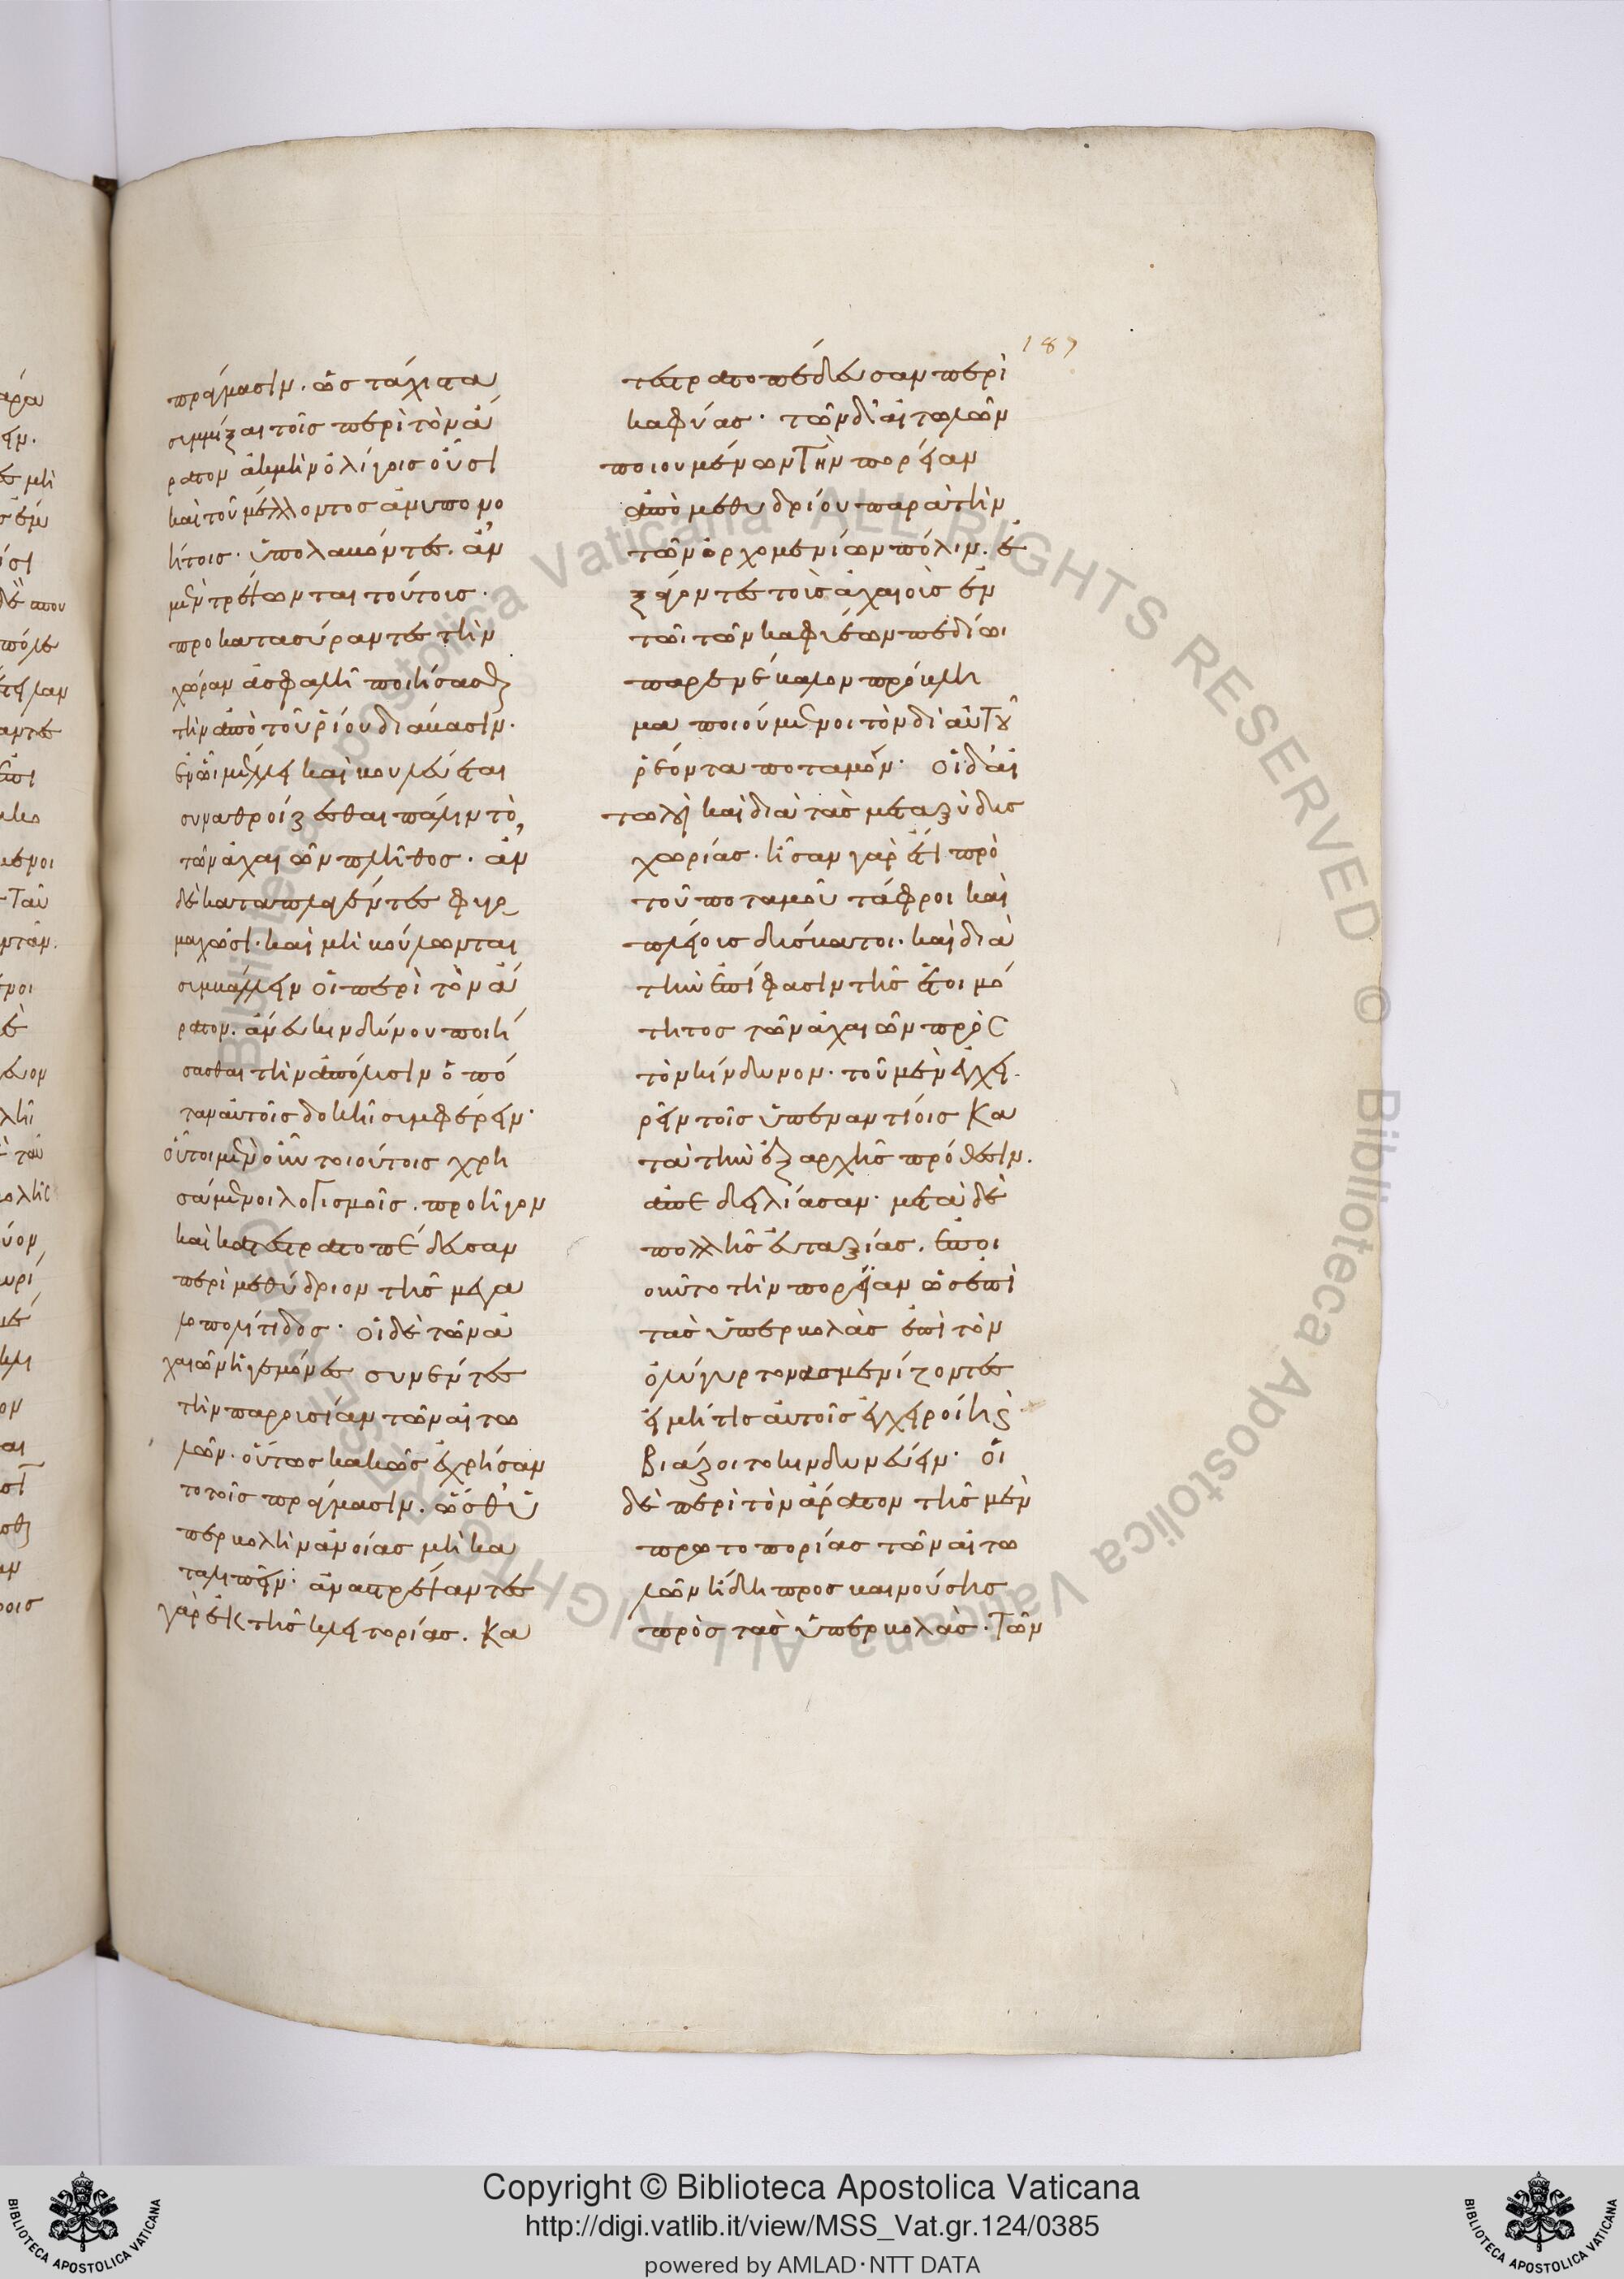 πράγμασιν. ὡς τάχιστα
συμμίξαι τοῖς περὶ τὸν ἄ
ρατον ἀκμὴν ὀλίγοις οὖσι
καὶ τοῦ μέλλοντος ἀνυπονο
ήτοις. ὑπολαβόντες. ἂν
μὲν τρέψωνται τούτοις.
προκατασύραντες τὴν
χώραν ἀσφαλῆ ποιήσασθαι
τὴν ἀπὸ τοῦ ῥίου διάβασιν.
ἐν ὧι μέλλει καὶ βουλεύεται
συναθροίζεσθαι πάλιν τὸ
τῶν ἀχαιῶν πλῆθος. ἂν
δὲ καταπλαγέντες φυγο
μαχῶσι. καὶ μὴ βούλωνται
συμβάλλειν οἱ περὶ τὸν ἄ
ρατον. ἄνευ κινδύνου ποιή
σασθαι τὴν ἀπόλυσιν ὁπό
ταν αὐτοῖς δοκῆι συμφέρειν.
οὗτοι μὲν οὖν τοιούτοις χρη
σάμενοι λογισμοῖς. προῆγον
καὶ κατεστρατοπέδευσαν
περὶ μεθύδριον τῆς μεγα
λοπολίτιδος. οἱ δὲ τῶν ἀ
χαιῶν ἡγεμόνες συνέντες
τὴν παρουσίαν τῶν αἰτω
λῶν. οὕτως κακῶς ἐχρήσαν
το τοῖς πράγμασιν. ὥσθ' ὑ
περβολὴν ἀνοίας μὴ κα
ταλιπεῖν. ἀναστρέψαντες
γὰρ ἐκ τῆς κλειτορίας. κα
187
τεστρατοπέδευσαν περὶ
καφύας. τῶν δ' αἰτωλῶν
ποιουμένων τὴν πορείαν
ἀπὸ μεθυδρίου παρὰ τὴν
τῶν ὀρχομενίων πόλιν. ἐ
ξάγοντες τοὺς ἀχαιοὺς ἐν
τῶι τῶν καφυέων πεδίωι
παρενέβαλον πρόβλη
μα ποιούμενοι τὸν δι' αὐτοῦ
ῥέοντα ποταμόν. οἱ δ' αἰ
τωλοὶ καὶ διὰ τὰς μεταξὺ δυσ
χωρίας. ἦσαν γὰρ ἔτι πρὸ
τοῦ ποταμοῦ τάφροι καὶ
πλείους δύσβατοι. καὶ διὰ
τὴν ἐπίφασιν τῆς ἑτοιμό
τητος τῶν ἀχαιῶν πρὸς
τὸν κίνδυνον. τοῦ μὲν ἐγχει
ρεῖν τοῖς ὑπεναντίοις κα
τὰ τὴν ἐξ ἀρχῆς πρόθεσιν.
ἀπεδειλίασαν. μετὰ δὲ
πολλῆς εὐταξίας. ἐποι
οῦντο τὴν πορείαν ὡς ἐπὶ
τὰς ὑπερβολὰς ἐπὶ τὸν
ὀλύγυρτον ἀσμενίζοντες
εἰ μή τις αὐτοῖς ἐγχειροίη
βιάζοιτο κινδυνεύειν. οἱ
δὲ περὶ τὸν ἄρατον τῆς μὲν
πρωτοπορίας τῶν αἰτω
λῶν ἤδη προσβαινούσης
πρὸς τὰς ὑπερβολὰς. τῶν
Copyright © Biblioteca Apostolica Vaticana
http://digi.vatlib.it/view/MSS_Vat.gr.124/0385
powered by AMLAD·NTT DATA